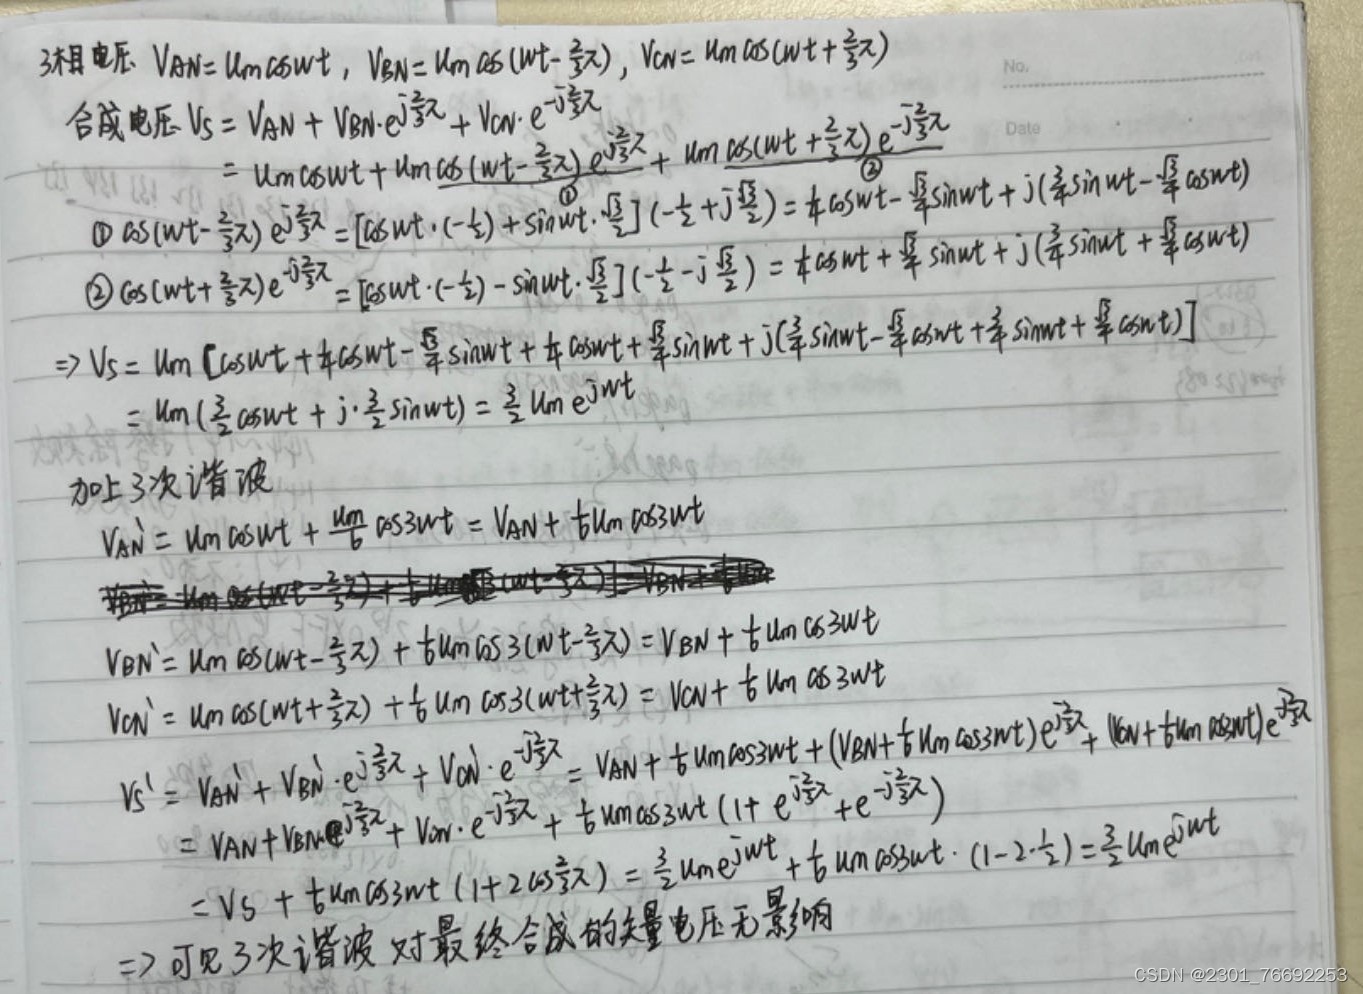 No.
Date
3相电压 VAN=Umcoswt, VBN=Umcos(wt-2/3π), VCN=Umcos(wt+2/3π)
合成电压 VS = VAN + VBN·e^j2/3π + VCN·e^-j2/3π
= Umcoswt + Umcos(wt-2/3π)e^j2/3π + Umcos(wt+2/3π)e^-j2/3π
① ②
① cos(wt-2/3π)e^j2/3π = [coswt·(-1/2) + sinwt·√3/2](-1/2+j√3/2) = 1/4coswt - √3/4sinwt + j(3/4sinwt - √3/4coswt)
② cos(wt+2/3π)e^-j2/3π = [coswt·(-1/2) - sinwt·√3/2](-1/2-j√3/2) = 1/4coswt + √3/4sinwt + j(3/4sinwt + √3/4coswt)
=> VS = Um[coswt + 1/4coswt - √3/4sinwt + 1/4coswt + √3/4sinwt + j(3/4sinwt - √3/4coswt + 3/4sinwt + √3/4coswt)]
= Um(3/2coswt + j·3/2sinwt) = 3/2Ume^jwt
加上3次谐波
VAN' = Umcoswt + Um/6 cos3wt = VAN + 1/6Umcos3wt
VBN' = Umcos(wt-2/3π) + 1/6Umcos3(wt-2/3π) = VBN + 1/6Umcos3wt
VCN' = Umcos(wt+2/3π) + 1/6Umcos3(wt+2/3π) = VCN + 1/6Umcos3wt
VS' = VAN' + VBN'·e^j2/3π + VCN'·e^-j2/3π = VAN + 1/6Umcos3wt + (VBN+1/6Umcos3wt)e^j2/3π + (VCN+1/6Umcos3wt)e^-j2/3π
= VAN + VBN·e^j2/3π + VCN·e^-j2/3π + 1/6Umcos3wt(1 + e^j2/3π + e^-j2/3π)
= VS + 1/6Umcos3wt(1+2cos2/3π) = 3/2Ume^jwt + 1/6Umcos3wt·(1-2·1/2) = 3/2Ume^jwt
=> 可见3次谐波对最终合成的矢量电压无影响
CSDN @2301_76692253